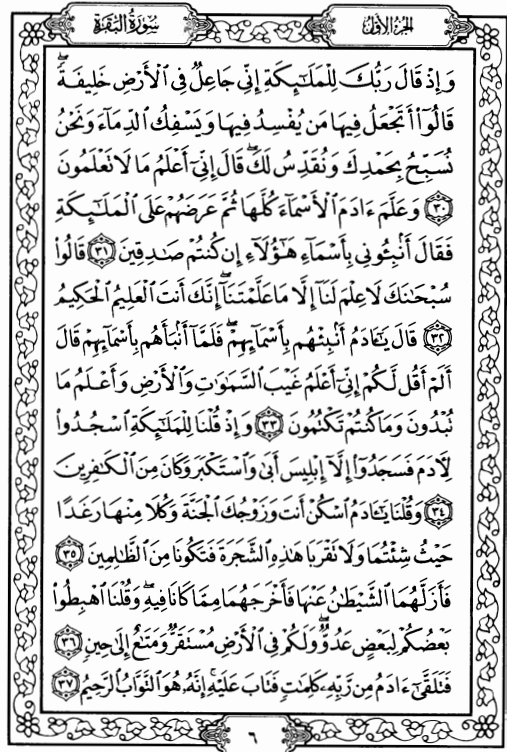 سُورَةُ البَقَرَة الجزء الأول
وَإِذْ قَالَ رَبُّكَ لِلْمَلَٰٓئِكَةِ إِنِّى جَاعِلٌ فِى ٱلْأَرْضِ خَلِيفَةً ۖ
قَالُوٓا۟ أَتَجْعَلُ فِيهَا مَن يُفْسِدُ فِيهَا وَيَسْفِكُ ٱلدِّمَآءَ وَنَحْنُ
نُسَبِّحُ بِحَمْدِكَ وَنُقَدِّسُ لَكَ ۖ قَالَ إِنِّىٓ أَعْلَمُ مَا لَا تَعْلَمُونَ
٣٠ وَعَلَّمَ ءَادَمَ ٱلْأَسْمَآءَ كُلَّهَا ثُمَّ عَرَضَهُمْ عَلَى ٱلْمَلَٰٓئِكَةِ
فَقَالَ أَنۢبِـُٔونِى بِأَسْمَآءِ هَٰٓؤُلَآءِ إِن كُنتُمْ صَٰدِقِينَ ٣١ قَالُوا۟
سُبْحَٰنَكَ لَا عِلْمَ لَنَآ إِلَّا مَا عَلَّمْتَنَآ ۖ إِنَّكَ أَنتَ ٱلْعَلِيمُ ٱلْحَكِيمُ
٣٢ قَالَ يَٰٓـَٔادَمُ أَنۢبِئْهُم بِأَسْمَآئِهِمْ ۖ فَلَمَّآ أَنۢبَأَهُم بِأَسْمَآئِهِمْ قَالَ
أَلَمْ أَقُل لَّكُمْ إِنِّىٓ أَعْلَمُ غَيْبَ ٱلسَّمَٰوَٰتِ وَٱلْأَرْضِ وَأَعْلَمُ مَا
تُبْدُونَ وَمَا كُنتُمْ تَكْتُمُونَ ٣٣ وَإِذْ قُلْنَا لِلْمَلَٰٓئِكَةِ ٱسْجُدُوا۟
لِـَٔادَمَ فَسَجَدُوٓا۟ إِلَّآ إِبْلِيسَ أَبَىٰ وَٱسْتَكْبَرَ وَكَانَ مِنَ ٱلْكَٰفِرِينَ
٣٤ وَقُلْنَا يَٰٓـَٔادَمُ ٱسْكُنْ أَنتَ وَزَوْجُكَ ٱلْجَنَّةَ وَكُلَا مِنْهَا رَغَدًا
حَيْثُ شِئْتُمَا وَلَا تَقْرَبَا هَٰذِهِ ٱلشَّجَرَةَ فَتَكُونَا مِنَ ٱلظَّٰلِمِينَ ٣٥
فَأَزَلَّهُمَا ٱلشَّيْطَٰنُ عَنْهَا فَأَخْرَجَهُمَا مِمَّا كَانَا فِيهِ ۖ وَقُلْنَا ٱهْبِطُوا۟
بَعْضُكُمْ لِبَعْضٍ عَدُوٌّ ۖ وَلَكُمْ فِى ٱلْأَرْضِ مُسْتَقَرٌّ وَمَتَٰعٌ إِلَىٰ حِينٍ ٣٦
فَتَلَقَّىٰٓ ءَادَمُ مِن رَّبِّهِۦ كَلِمَٰتٍ فَتَابَ عَلَيْهِ ۚ إِنَّهُۥ هُوَ ٱلتَّوَّابُ ٱلرَّحِيمُ ٣٧
٦